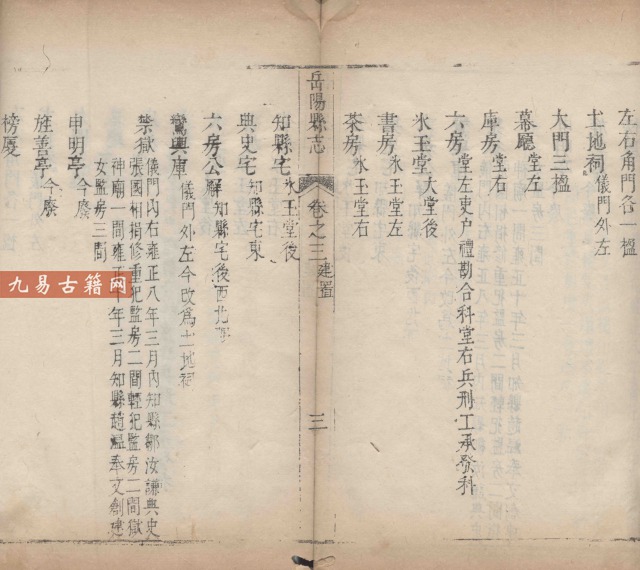 左右角門各一楹
土地祠儀門外左
大門三楹
幕廳堂左
庫房堂右
六房堂左吏户禮勘合科堂右兵刑工承發科
氷玉堂大堂後
書房氷玉堂左
茶房氷玉堂右
岳陽縣志 卷之三 建置 三
知縣宅氷玉堂後
典史宅知縣宅東
六房公廨知縣宅後西北
鑾輿庫儀門外左今改爲土地祠
禁獄儀門內右雍正八年三月內知縣鄒汝謙典史
張國相捐修重犯監房二間輕犯監房二間獄
神廟一間雍正十年三月知縣趙溫奉文創建
女監房三間
申明亭今廢
旌善亭今廢
榜厦
九易古籍网